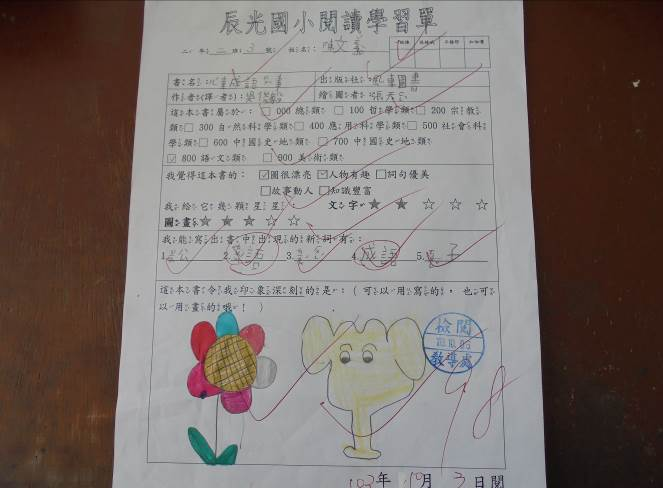 辰光國小閱讀學習單
二年二班3號 姓名:
書名: 成語 出版社: 圖書
作者(譯者): 繪圖者:張天
這本書屬於:□000 總類□100 哲學類□200 宗教
類□300 自然科學類□400 應用科學類□500 社會科
學類□600 中國史地類□700 中國史地類
☑800 語文類 □900 美術類
我覺得這本書的:☑圖很漂亮☑人物有趣□詞句優美
□故事動人□知識豐富
我給它幾顆星星: 文字★★☆☆☆
圖畫★★★☆☆
我能寫出書中出現的新詞有:
1. 公 2. 3. 公 4.成語 5. 子
這本書令我印象深刻的是:(可以用寫的,也可
以用畫的哦!)
檢閱
教導處
98
103年10月3日閱